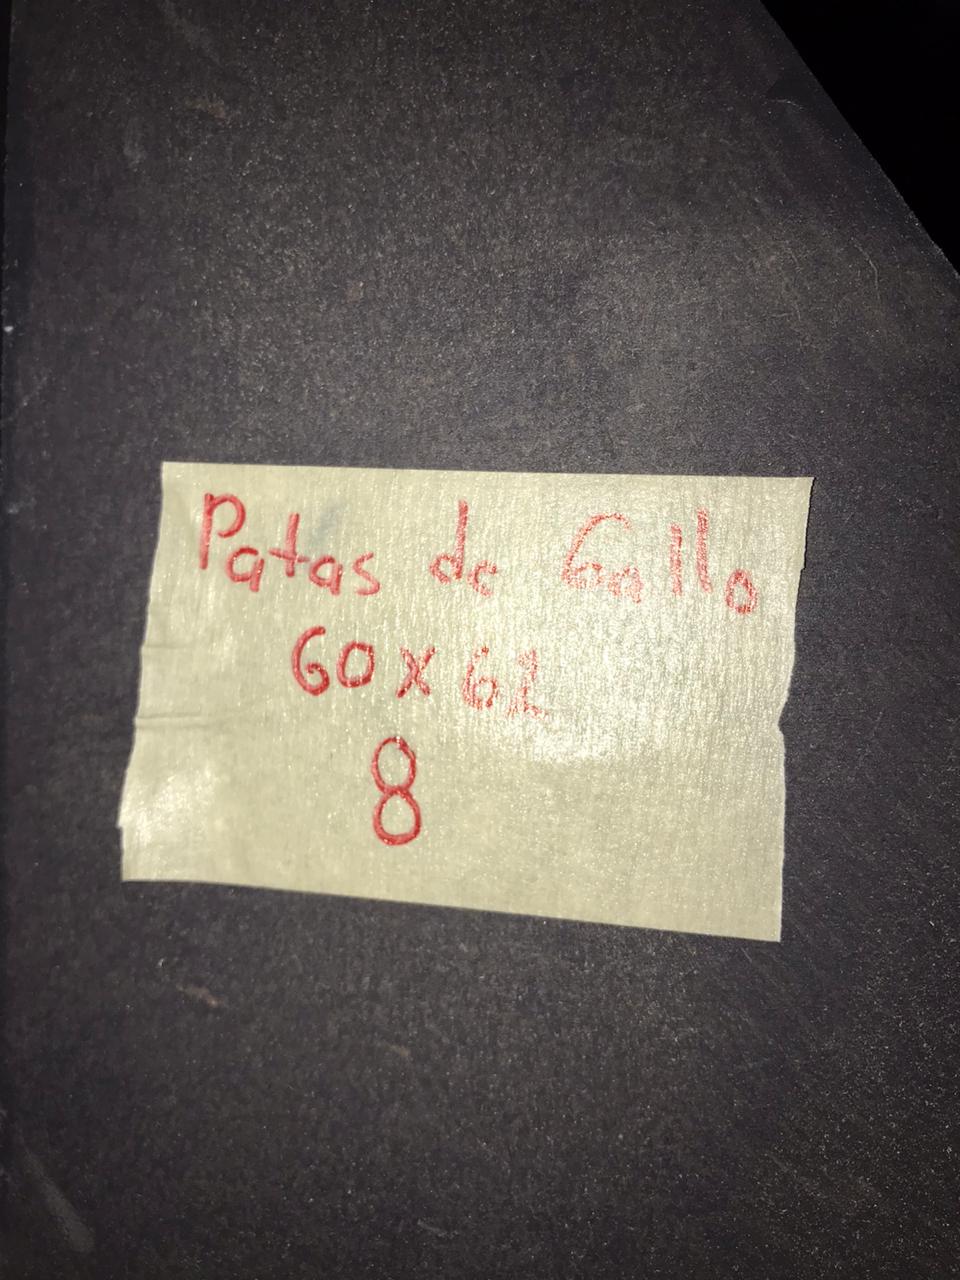 Patas de Gallo
60 x 62
8